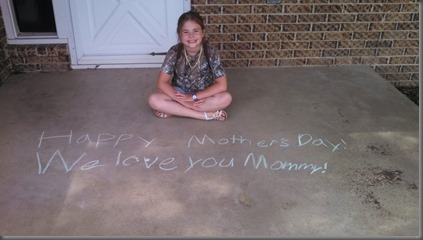 Happy Mother's Day!
We love you Mommy!